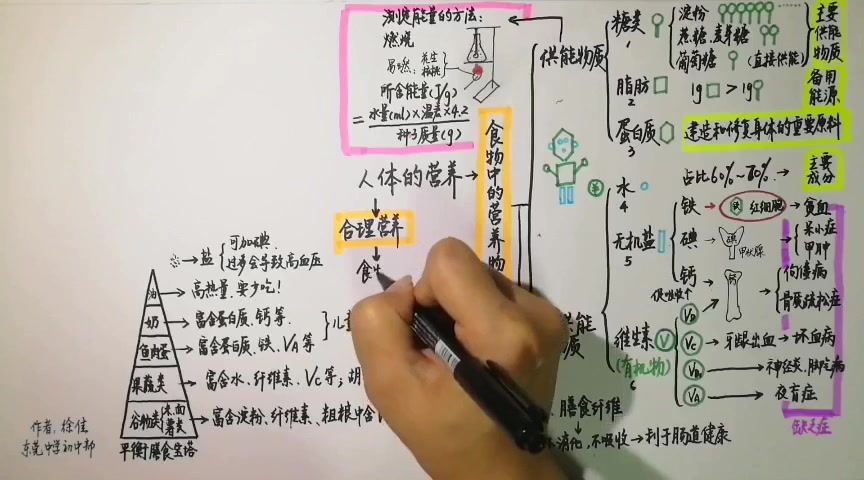 测定能量的方法:
燃烧
易燃: 花生
核桃
所含能量(J/g)
= 水量(ml)×温差×4.2
种子质量(g)
人体的营养
合理营养
食物中的营养物
供能物质
糖类
1
淀粉
蔗糖、麦芽糖
葡萄糖 (直接供能)
主要
供能
物质
脂肪
2
1g > 1g
备用
能源
蛋白质
3
建造和修复身体的重要原料
水
4
占比60%~70%
主要
成分
无机盐
5
铁
铁 红细胞
贫血
碘
碘
甲状腺
呆小症
甲肿
钙
钙
佝偻病
骨质疏松症
维生素
(有机物)
6
V
VD
VC 牙龈出血 坏血病
VB 神经炎、脚气病
VA 夜盲症
缺乏症
膳食纤维
不吸收 利于肠道健康
盐
可加碘
过多会导致高血压
油 高热量,要少吃!
奶 富含蛋白质、钙等.
鱼肉蛋 富含蛋白质、铁、VA等
果蔬类 富含水、纤维素、VC等;
谷物类 富含淀粉、纤维素、粗粮中含
平衡膳食宝塔
作者: 徐佳
东莞中学初中部